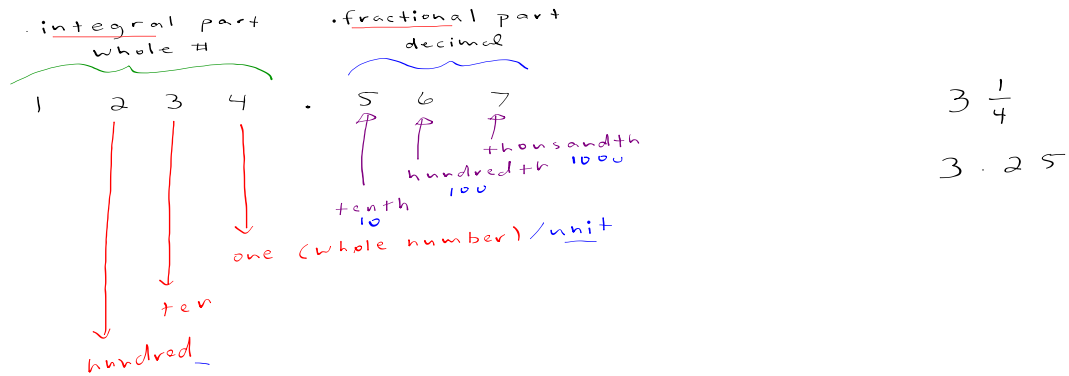 . integral part
whole #
. fractional part
decimal
1 2 3 4 . 5 6 7
thousandth
1000
hundredth
100
tenth
10
one (whole number) / unit
ten
hundred_
3 1/4
3 . 2 5